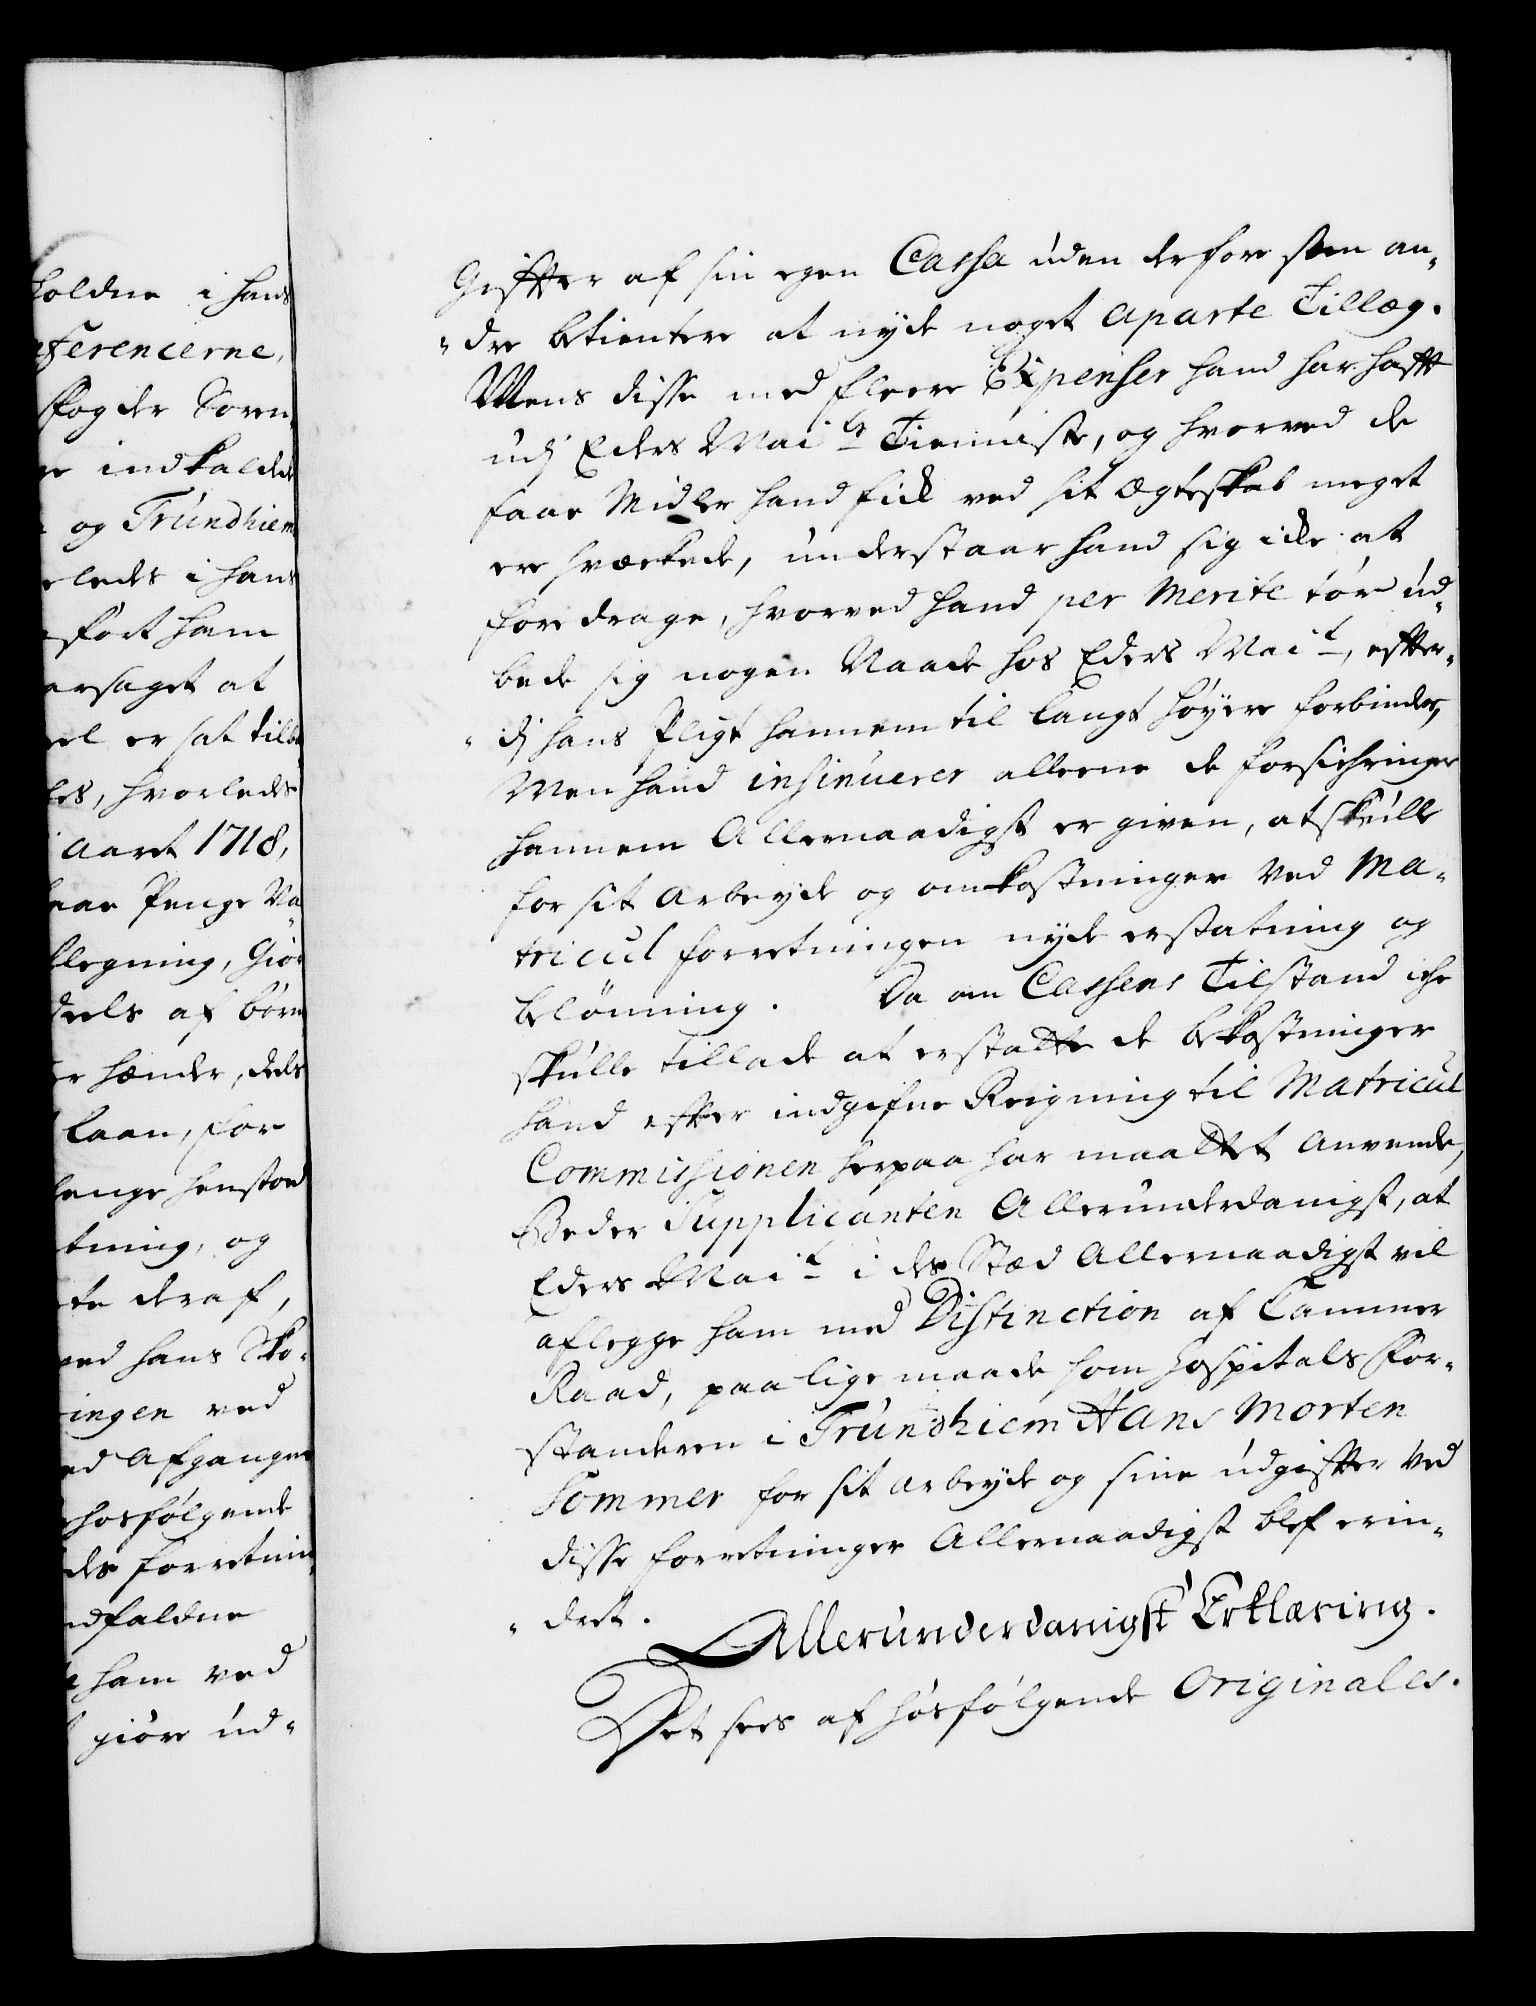 holdne i hans
ferencerne,
skog der Soren,
indkaldede
og Trundhiem
leeds i hans
ført ham
arsaget at
er sat tilba
, hvorleds
aaret 1718,
Penge Ma
legning, Giør
deels af børn
hænder, deels
laan, for
lenge henstod
tning, og
deraf,
ved hans Sko-
ingen ved
Afgangen
hosfølgende
forretnin
dfaldne
ham ved
giøre ud-
Gifter af sin egen Cassa uden derfore som an-
"dre betienter at nyde noget aparte Tillæg.
Mens disse med fleere Expenser hand har hafft
udj Eders Maits Tienniste, og hvorved de
faae Midler hand fick ved sit Ægteskab meget
er svækkede, understaar hand sig icke at
fore drage, hvorved hand per Merite tør ud-
bede sig nogen Naade hos Eders Mait, effter-
"dj hans Pligt hannem til langt høyere forbinder,
Men hand insinuerer alleene de forsichringer
hannem Allernaadigst er given, at skulle
for sit arbeyde og omkostninger ved Ma-
tricul forretningen nyde erstatning og
belønning. Da om Cassens Tilstand iche
skulle tillade at erstatte de bekostninger
hand effter indgifne Reigning til Matricul
Commissionen herpaa har maattet anvende,
Beder Supplicanten Allerunderdanigst, at
Eders Mait i des Stæd Allernaadigst vil
aflegge ham med Distinction af Cammer
Raad, paa lige maade som Hospitals For-
standeren i Trundhiem Hans Morten
Sommer for sit arbeyde og sine udgiffter ved
disse forretninger Allernaadigst blef erin-
"dret.
Allerunderdanigst Erklæring.
Det sees af hosfølgende Originales.